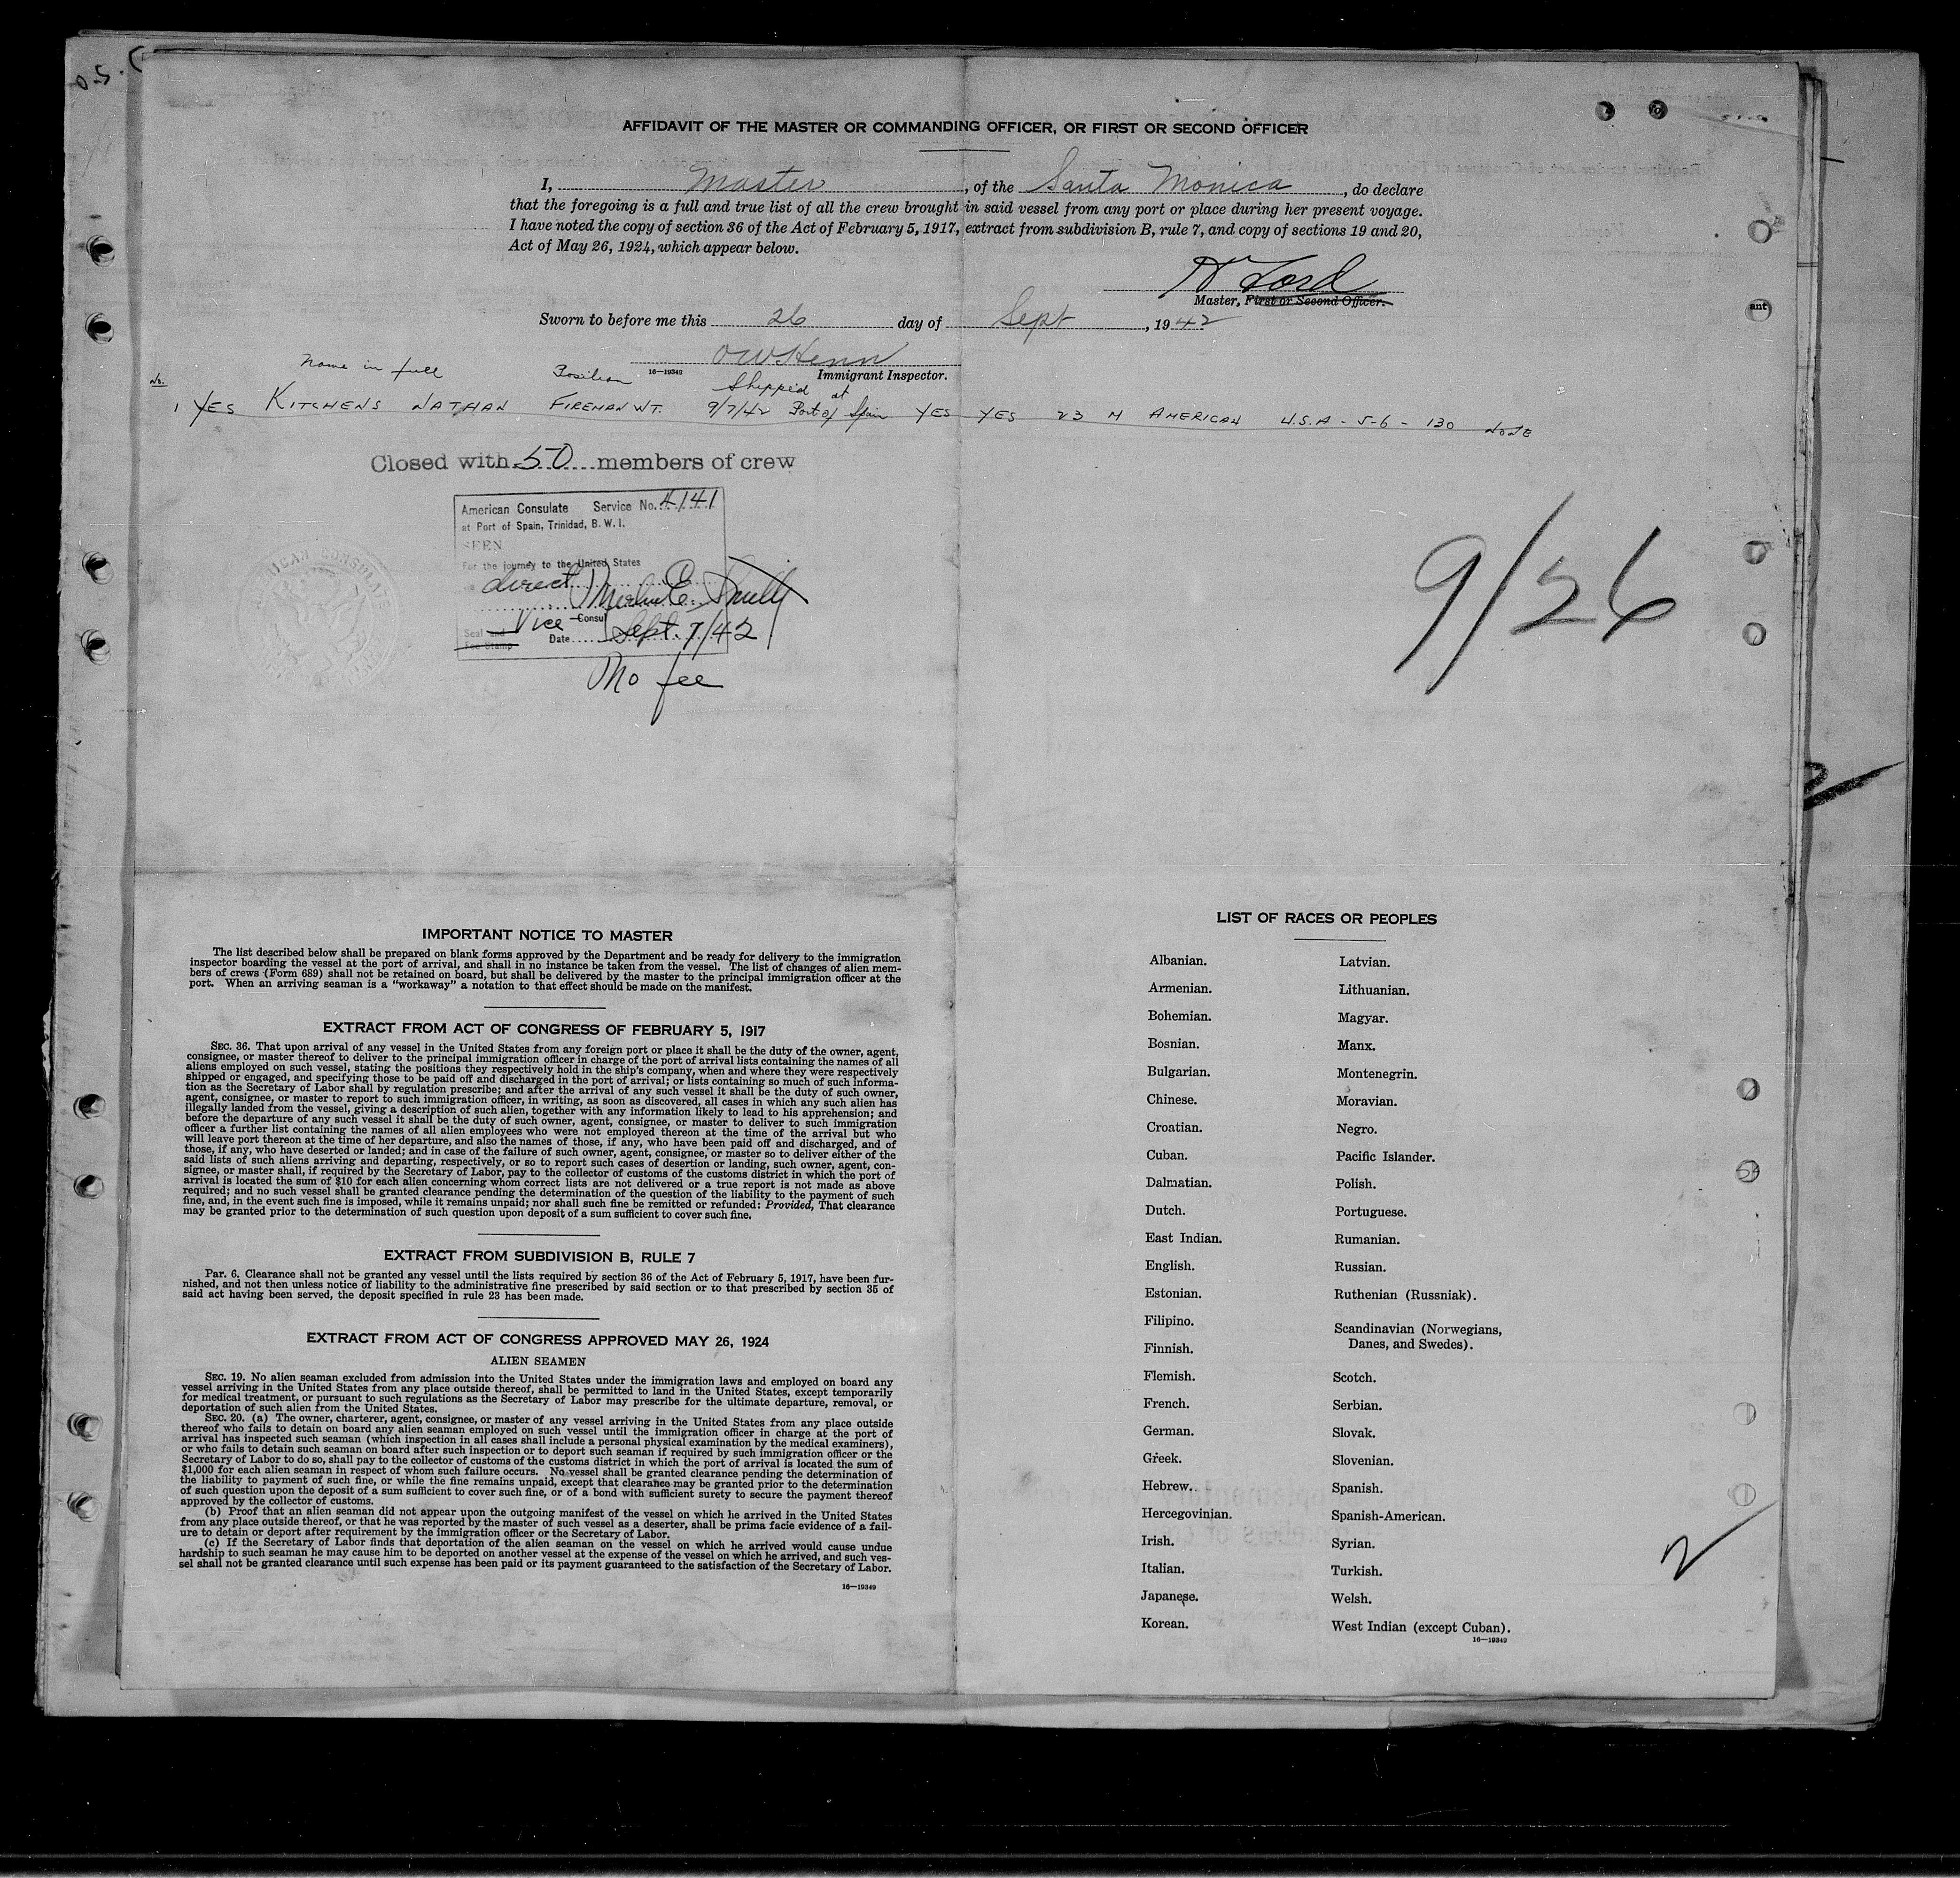 O.S.
AFFIDAVIT OF THE MASTER OR COMMANDING OFFICER, OR FIRST OR SECOND OFFICER
I, Master, of the Santa Monica, do declare
that the foregoing is a full and true list of all the crew brought in said vessel from any port or place during her present voyage.
I have noted the copy of section 36 of the Act of February 5, 1917, extract from subdivision B, rule 7, and copy of sections 19 and 20,
Act of May 26, 1924, which appear below.
Master, First or Second Officer.
Sworn to before me this 26 day of Sept, 1942
16—19349 Immigrant Inspector.
No. Name in full Position Shipped at
1 YES KITCHENS NATHAN FIREMAN WT. 9/7/42 Port of Spain YES YES 23 M AMERICAN U.S.A - 5-6 - 130 NONE
Closed with 50 members of crew
American Consulate Service No. 4141
at Port of Spain, Trinidad, B. W. I.
SEEN
For the journey to the United States
direct
Vice Consul
Seal and
Fee Stamp Date Sept. 7/42
No fee
9/26
ant
IMPORTANT NOTICE TO MASTER
The list described below shall be prepared on blank forms approved by the Department and be ready for delivery to the immigration
inspector boarding the vessel at the port of arrival, and shall in no instance be taken from the vessel. The list of changes of alien mem-
bers of crews (Form 689) shall not be retained on board, but shall be delivered by the master to the principal immigration officer at the
port. When an arriving seaman is a "workaway" a notation to that effect should be made on the manifest.
EXTRACT FROM ACT OF CONGRESS OF FEBRUARY 5, 1917
SEC. 36. That upon arrival of any vessel in the United States from any foreign port or place it shall be the duty of the owner, agent,
consignee, or master thereof to deliver to the principal immigration officer in charge of the port of arrival lists containing the names of all
aliens employed on such vessel, stating the positions they respectively hold in the ship's company, when and where they were respectively
shipped or engaged, and specifying those to be paid off and discharged in the port of arrival; or lists containing so much of such informa-
tion as the Secretary of Labor shall by regulation prescribe; and after the arrival of any such vessel it shall be the duty of such owner,
agent, consignee, or master to report to such immigration officer, in writing, as soon as discovered, all cases in which any such alien has
illegally landed from the vessel, giving a description of such alien, together with any information likely to lead to his apprehension; and
before the departure of any such vessel it shall be the duty of such owner, agent, consignee, or master to deliver to such immigration
officer a further list containing the names of all alien employees who were not employed thereon at the time of the arrival but who
will leave port thereon at the time of her departure, and also the names of those, if any, who have been paid off and discharged, and of
those, if any, who have deserted or landed; and in case of the failure of such owner, agent, consignee, or master so to deliver either of the
said lists of such aliens arriving and departing, respectively, or so to report such cases of desertion or landing, such owner, agent, con-
signee, or master shall, if required by the Secretary of Labor, pay to the collector of customs of the customs district in which the port of
arrival is located the sum of $10 for each alien concerning whom correct lists are not delivered or a true report is not made as above
required; and no such vessel shall be granted clearance pending the determination of the question of the liability to the payment of such
fine, and, in the event such fine is imposed, while it remains unpaid; nor shall such fine be remitted or refunded: Provided, That clearance
may be granted prior to the determination of such question upon deposit of a sum sufficient to cover such fine.
EXTRACT FROM SUBDIVISION B, RULE 7
Par. 6. Clearance shall not be granted any vessel until the lists required by section 36 of the Act of February 5, 1917, have been fur-
nished, and not then unless notice of liability to the administrative fine prescribed by said section or to that prescribed by section 35 of
said act having been served, the deposit specified in rule 23 has been made.
EXTRACT FROM ACT OF CONGRESS APPROVED MAY 26, 1924
ALIEN SEAMEN
SEC. 19. No alien seaman excluded from admission into the United States under the immigration laws and employed on board any
vessel arriving in the United States from any place outside thereof, shall be permitted to land in the United States, except temporarily
for medical treatment, or pursuant to such regulations as the Secretary of Labor may prescribe for the ultimate departure, removal, or
deportation of such alien from the United States.
SEC. 20. (a) The owner, charterer, agent, consignee, or master of any vessel arriving in the United States from any place outside
thereof who fails to detain on board any alien seaman employed on such vessel until the immigration officer in charge at the port of
arrival has inspected such seaman (which inspection in all cases shall include a personal physical examination by the medical examiners),
or who fails to detain such seaman on board after such inspection or to deport such seaman if required by such immigration officer or the
Secretary of Labor to do so, shall pay to the collector of customs of the customs district in which the port of arrival is located the sum of
$1,000 for each alien seaman in respect of whom such failure occurs. No vessel shall be granted clearance pending the determination of
the liability to payment of such fine, or while the fine remains unpaid, except that clearance may be granted prior to the determination
of such question upon the deposit of a sum sufficient to cover such fine, or of a bond with sufficient surety to secure the payment thereof
approved by the collector of customs.
(b) Proof that an alien seaman did not appear upon the outgoing manifest of the vessel on which he arrived in the United States
from any place outside thereof, or that he was reported by the master of such vessel as a deserter, shall be prima facie evidence of a fail-
ure to detain or deport after requirement by the immigration officer or the Secretary of Labor.
(c) If the Secretary of Labor finds that deportation of the alien seaman on the vessel on which he arrived would cause undue
hardship to such seaman he may cause him to be deported on another vessel at the expense of the vessel on which he arrived, and such ves-
sel shall not be granted clearance until such expense has been paid or its payment guaranteed to the satisfaction of the Secretary of Labor.
16—19349
LIST OF RACES OR PEOPLES
Albanian.
Armenian.
Bohemian.
Bosnian.
Bulgarian.
Chinese.
Croatian.
Cuban.
Dalmatian.
Dutch.
East Indian.
English.
Estonian.
Filipino.
Finnish.
Flemish.
French.
German.
Greek.
Hebrew.
Hercegovinian.
Irish.
Italian.
Japanese.
Korean.
Latvian.
Lithuanian.
Magyar.
Manx.
Montenegrin.
Moravian.
Negro.
Pacific Islander.
Polish.
Portuguese.
Rumanian.
Russian.
Ruthenian (Russniak).
Scandinavian (Norwegians,
Danes, and Swedes).
Scotch.
Serbian.
Slovak.
Slovenian.
Spanish.
Spanish-American.
Syrian.
Turkish.
Welsh.
West Indian (except Cuban).
16—19349
2